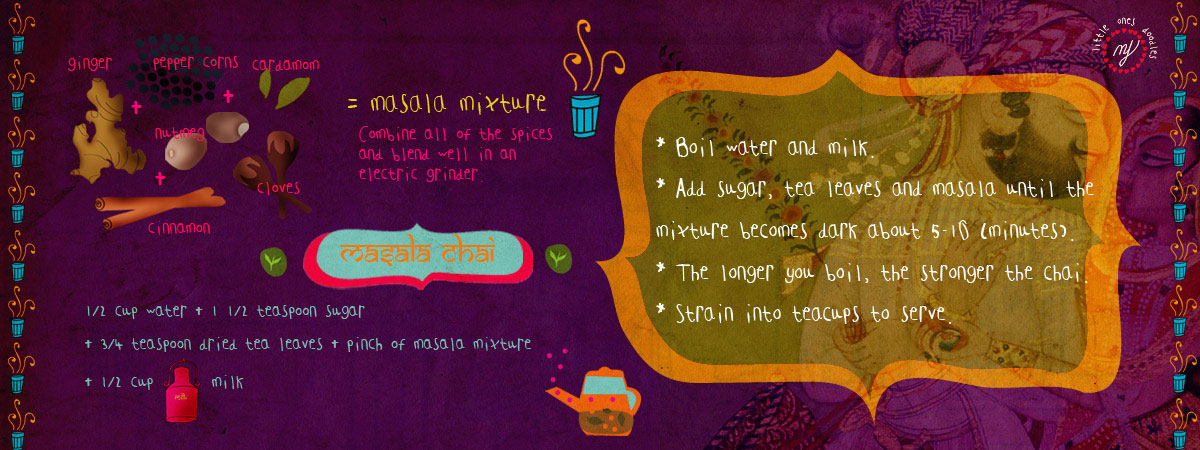 ginger
pepper corns
cardamom
+
+
nutmeg
+
cloves
cinnamon
= masala mixture
Combine all of the spices
and blend well in an
electric grinder.
masala chai
1/2 cup water + 1 1/2 teaspoon sugar
+ 3/4 teaspoon dried tea leaves + pinch of masala mixture
+ 1/2 cup milk
milk
* Boil water and milk.
* Add sugar, tea leaves and masala until the
mixture becomes dark about 5-10 (minutes).
* The longer you boil, the stronger the chai.
* Strain into teacups to serve.
little ones doodles